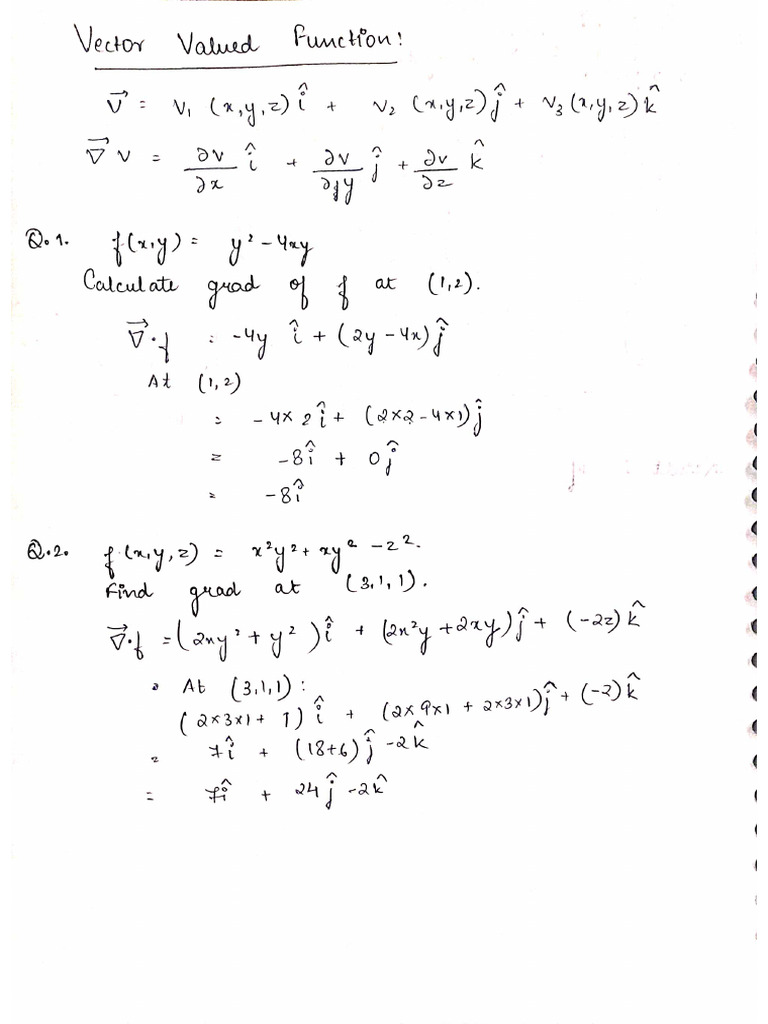 Vector Valued Function:
V⃗ = V₁ (x,y,z) î + V₂ (x,y,z) ĵ + V₃ (x,y,z) k̂
∇⃗ v = ∂v/∂x î + ∂v/∂y ĵ + ∂v/∂z k̂
Q.1. f(x,y) = y² - 4xy
Calculate grad of f at (1,2).
∇⃗·f = -4y î + (2y - 4x) ĵ
At (1,2)
= -4×2 î + (2×2 - 4×1) ĵ
= -8î + 0ĵ
= -8î
Q.2. f(x,y,z) = x²y² + xy² - z².
Find grad at (3,1,1).
∇⃗·f = (2xy² + y²) î + (2x²y + 2xy) ĵ + (-2z) k̂
At (3,1,1):
(2×3×1 + 1) î + (2×9×1 + 2×3×1) ĵ + (-2) k̂
= 7î + (18+6) ĵ - 2k̂
= 7î + 24ĵ - 2k̂